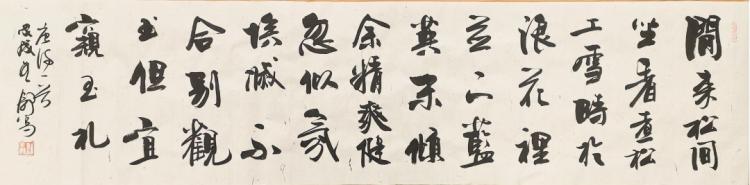 閒来松间
坐看煮松
上雪時於
浪花裡
並下藍
英末傾
余精爽健
忽似氛
埃滅不
合别觀
書但宜
窺玉札
唐诗一首
戊戌